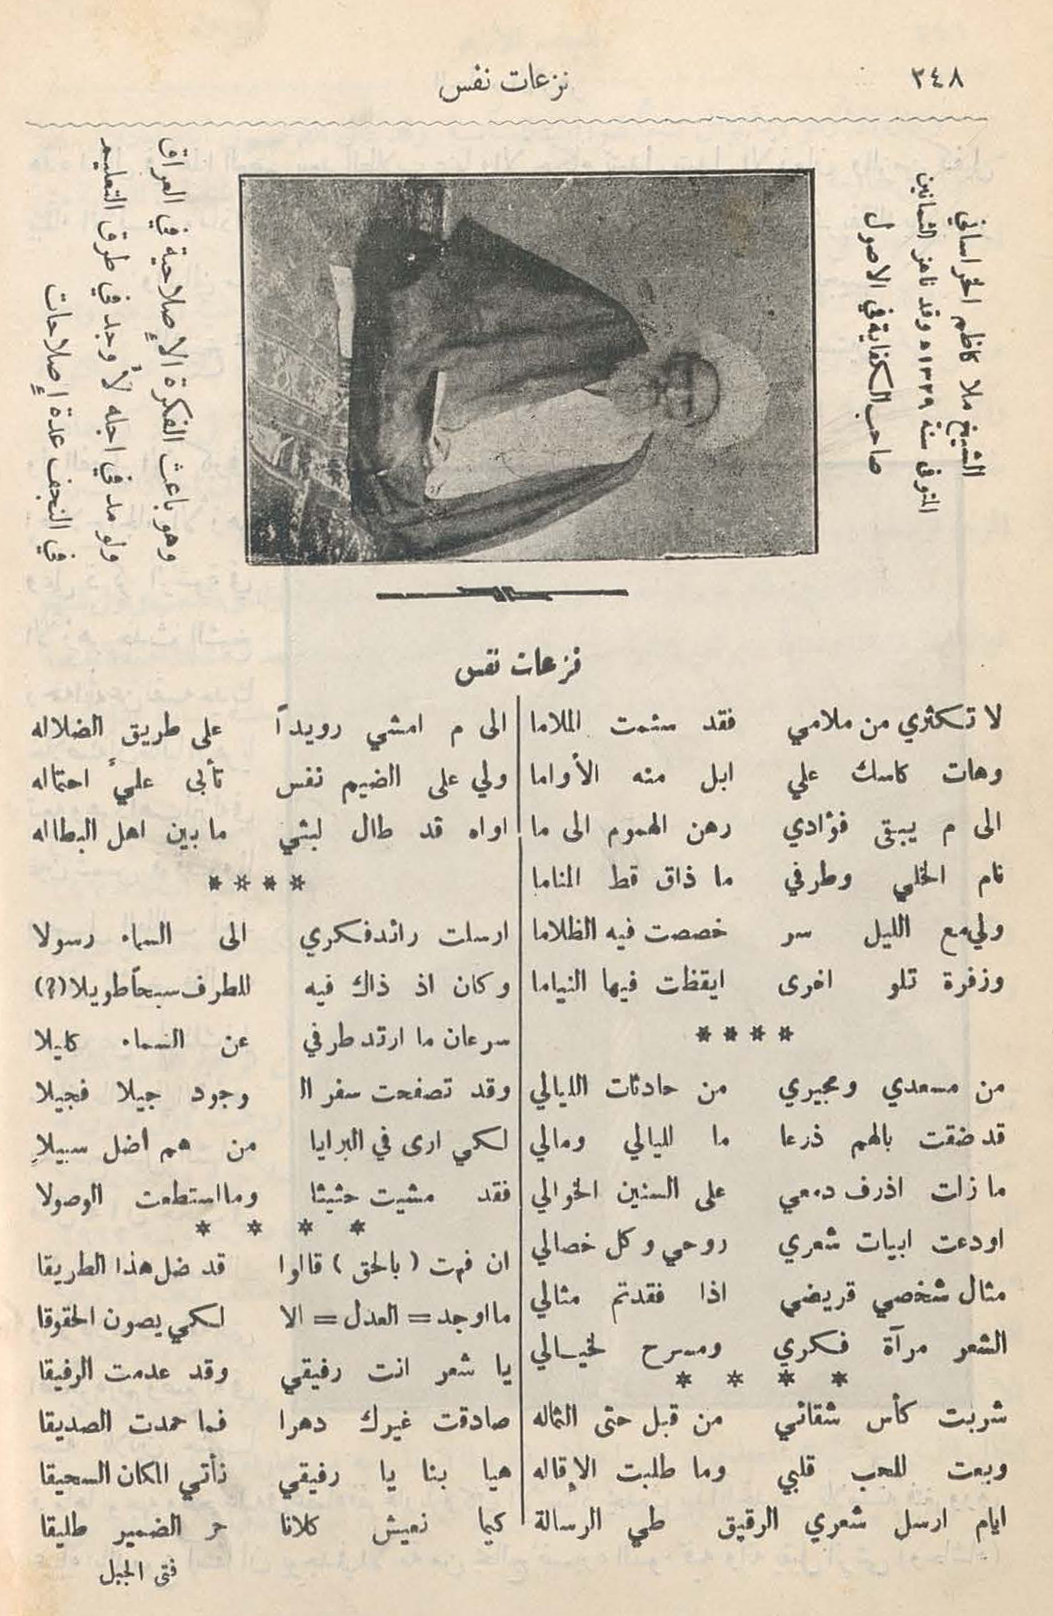 ٢٤٨
نزعات نفس
الشيخ ملا كاظم الخراساني
المتوفى سنة ١٣٢٩ه وقد ناهز الثمانين
صاحب الكفاية في الاصول
وهو باعث الفكرة الإصلاحية في العراق
ولو مد في اجله لأوجد في طرق التعليم
في النجف عدة إصلاحات
نزعات نفس
لا تكثري من ملامي فقد سئمت الملاما
وهات كاسك علي ابل منه الأواما
الى م يبقى فؤادي رهن الهموم الى ما
نام الخلي وطرفي ما ذاق قط المناما
ولي مع الليل سر خصصت فيه الظلاما
وزفرة تلو اخرى ايقظت فيها النياما
****
من مسعدي ومجيري من حادثات الليالي
قد ضقت بالهم ذرعا ما لليالي ومالي
ما زلت اذرف دمعي على السنين الخوالي
اودعت ابيات شعري روحي وكل خصالي
مثال شخصي قريضي اذا فقدتم مثالي
الشعر مرآة فكري ومسرح لخيالي
* * * *
شربت كأس شقائي من قبل حتى الثماله
وبعت للحب قلبي وما طلبت الإقاله
ايام ارسل شعري الرقيق طي الرسالة
الى م امشي رويداً على طريق الضلاله
ولي على الضيم نفس تأبى عليَّ احتماله
اواه قد طال لبثي ما بين اهل البطاله
****
ارسلت رائد فكري الى السماء رسولا
وكان اذ ذاك فيه للطرف سبحاً طويلا (؟)
سرعان ما ارتد طرفي عن السماء كليلا
وقد تصفحت سفر ال وجود جيلا فجيلا
لكي ارى في البرايا من هم اضل سبيلا
فقد مشيت حثيثا وما استطعت الوصولا
* * * *
ان فهت ( بالحق ) قالوا قد ضل هذا الطريقا
ما اوجد = العدل = الا لكي يصون الحقوقا
يا شعر انت رفيقي وقد عدمت الرفيقا
صادقت غيرك دهرا فما حمدت الصديقا
هيا بنا يا رفيقي نأتي المكان السحيقا
كيما نعيش كلانا حر الضمير طليقا
فتى الجبل